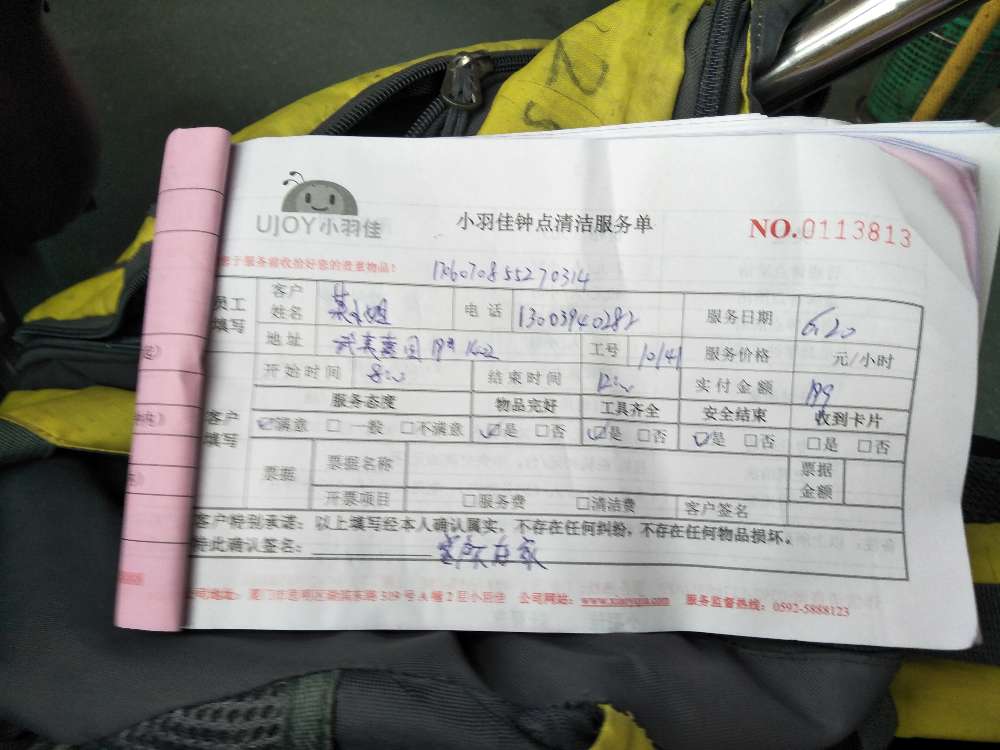 UJOY小羽佳
小羽佳钟点清洁服务单
NO.0113813
于服务前收拾好您的贵重物品！
17060708 55270314
员工填写 客户姓名 电话 13003940282 服务日期 6.20
地址 19# 1602 工号 10141 服务价格 元/小时
开始时间 8:00 结束时间 12:00 实付金额 199
客户填写 服务态度 物品完好 工具齐全 安全结束 收到卡片
☑满意 □一般 □不满意 ☑是 □否 ☑是 □否 ☑是 □否 □是 □否
票据 票据名称 票据金额
开票项目 □服务费 □清洁费 客户签名
客户特别承诺：以上填写经本人确认属实，不存在任何纠纷，不存在任何物品损坏。
特此确认签名：
公司地址：厦门市思明区 319号A幢2层小羽佳 公司网站：www.xiaoyujia.com 服务监督热线：0592-5888123